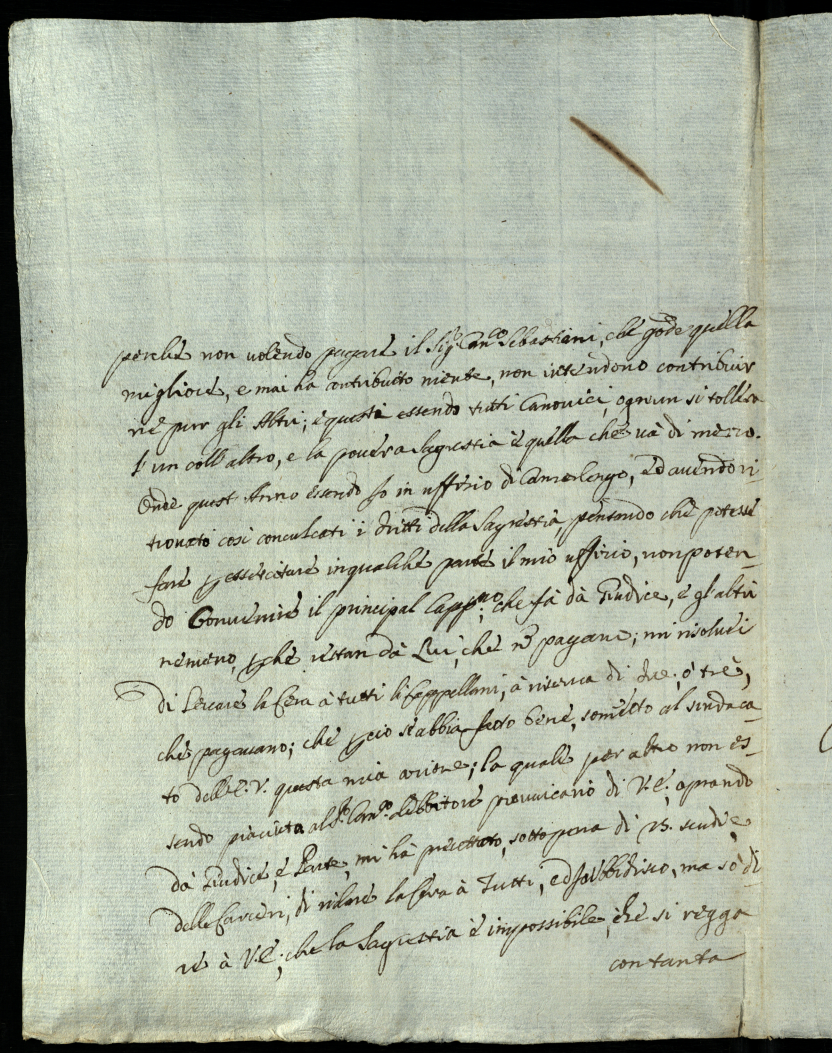 perche non volendo pagare il Sig.r Can.co Sebastiani, che gode quella
migliore, e mai ha contribuito niente, non intendono contribuir
ne pur gli Altri; e questi essendo tutti Canonici, ognun si tollera
l'un coll'altro, e la povera Sagrestia è quella che và di mezzo.
Onde quest'Anno essendo Io in uffizio di Camerlengo, ed avendo ri-
trovato così conculcati i dritti della Sagrestia, pensando che potesse
fare essercitare in qualche parte il mio uffizio, non poten-
do Convenire il principal Capp.no, che fà dà Giudice, e gl'altri
nemeno, che restan dà Lui, che nõ pagano; mi risolvei
di Levare la Cera à tutti li Cappellani, à riserva di due, ò trè,
che pagavano; che cio s'abbia fatto bene, sometto al sindaca-
to dell'E. V. questa mia azione; la quale per altro non es-
sendo piaciuta al S.r Can.co Provicario di V. E., oprando
dà Giudice, e Parte, mi hà precettato, sotto pena di 25. scudi, e
delle Carceri, di ridare la Cera à Tutti, ed Io ubbidisco, ma sò di-
re à V. E., che la Sagrestia è impossibile, che si regga
con tanta